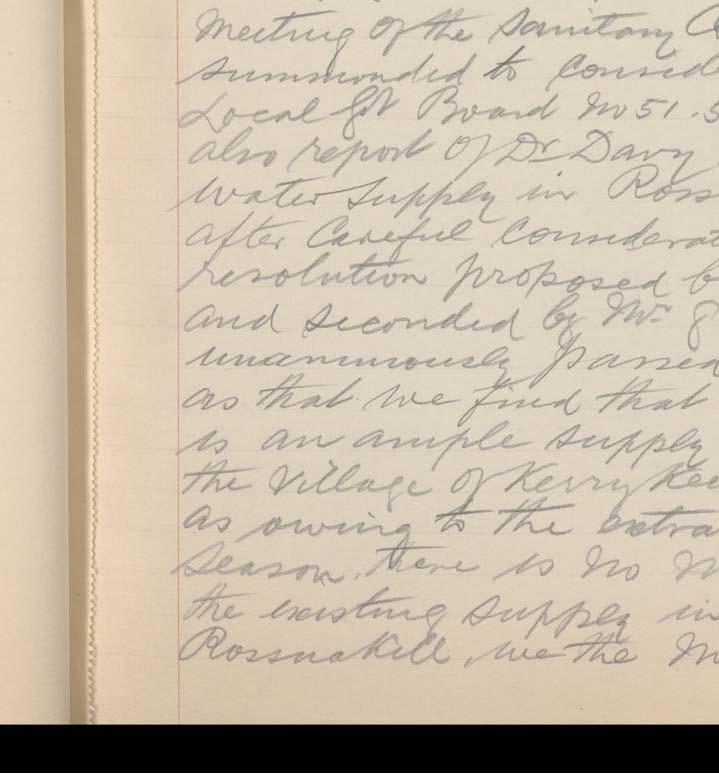 Meeting of the Sanitary
summonded to Consid
Local Gt Board No 51.
also report of Dr Davy
water supply in Ross
after Careful Considerat
resolution proposed b
and seconded by Mr
unanimously passed
as that we find that
is an ample supply
the Village of Kerrykee
as owing to the extra
Season, there is no
the existing supply in
Rossnakill, we the M